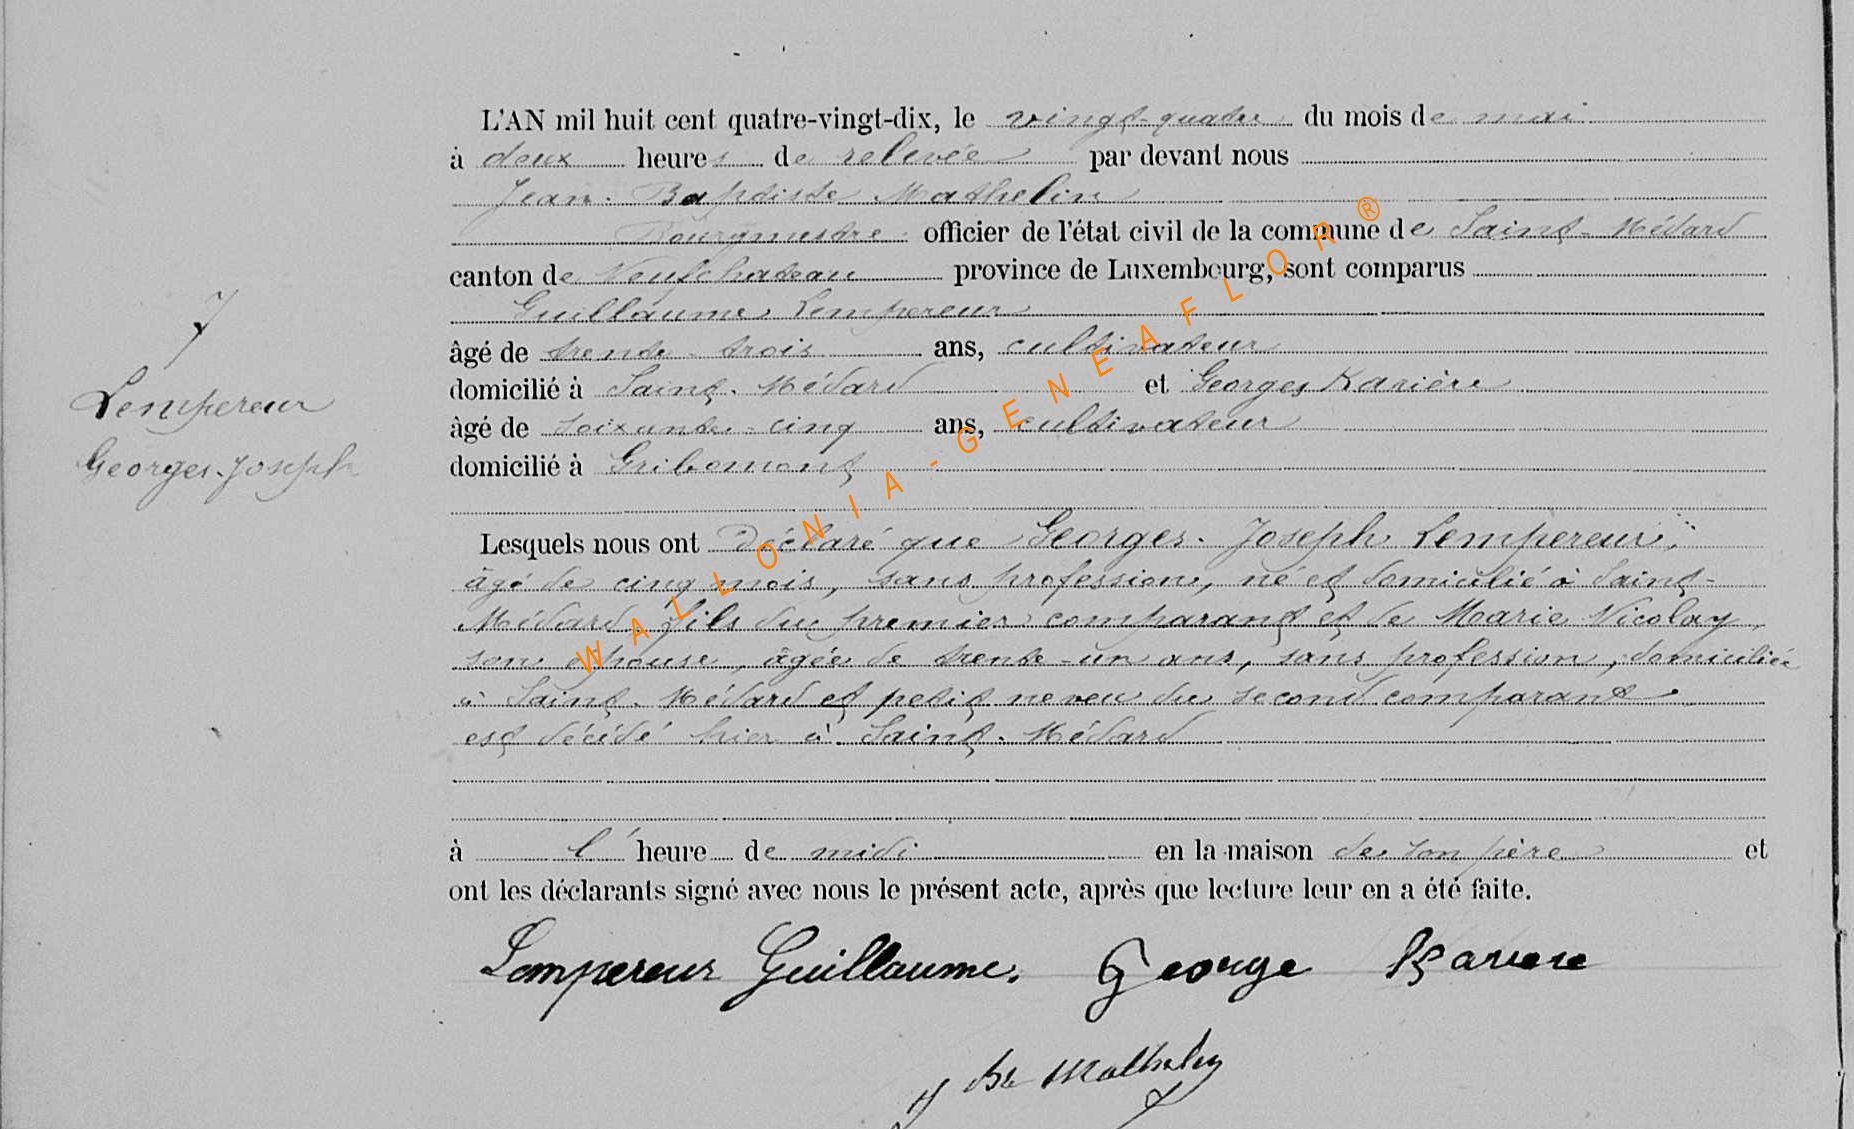 L'AN mil huit cent quatre-vingt-dix, le vingt-quatre du mois de mai
à deux heures de relevée par devant nous
Jean-Baptiste Mathelin
Bourgmestre officier de l'état civil de la commune de Saint-Médard
canton de Neufchateau province de Luxembourg, sont comparus
Guillaume Lempereur
âgé de trente-trois ans, cultivateur
domicilié à Saint-Médard et Georges Karière
âgé de soixante-cinq ans, cultivateur
domicilié à Gribomont
Lesquels nous ont déclaré que Georges-Joseph Lempereur,
âgé de cinq mois, sans profession, né et domicilié à Saint-
Médard, fils du premier comparant et de Marie Nicolay,
son épouse, âgée de trente-un ans, sans profession, domiciliée
à Saint-Médard et petit neveu du second comparant
est décédé hier à Saint-Médard
à l'heure de midi en la maison de son père et
ont les déclarants signé avec nous le présent acte, après que lecture leur en a été faite.
Lempereur Guillaume. George Karière
J Bte Mathelin
7
Lempereur
Georges-Joseph
WALLONIA-GENEAFLOR®